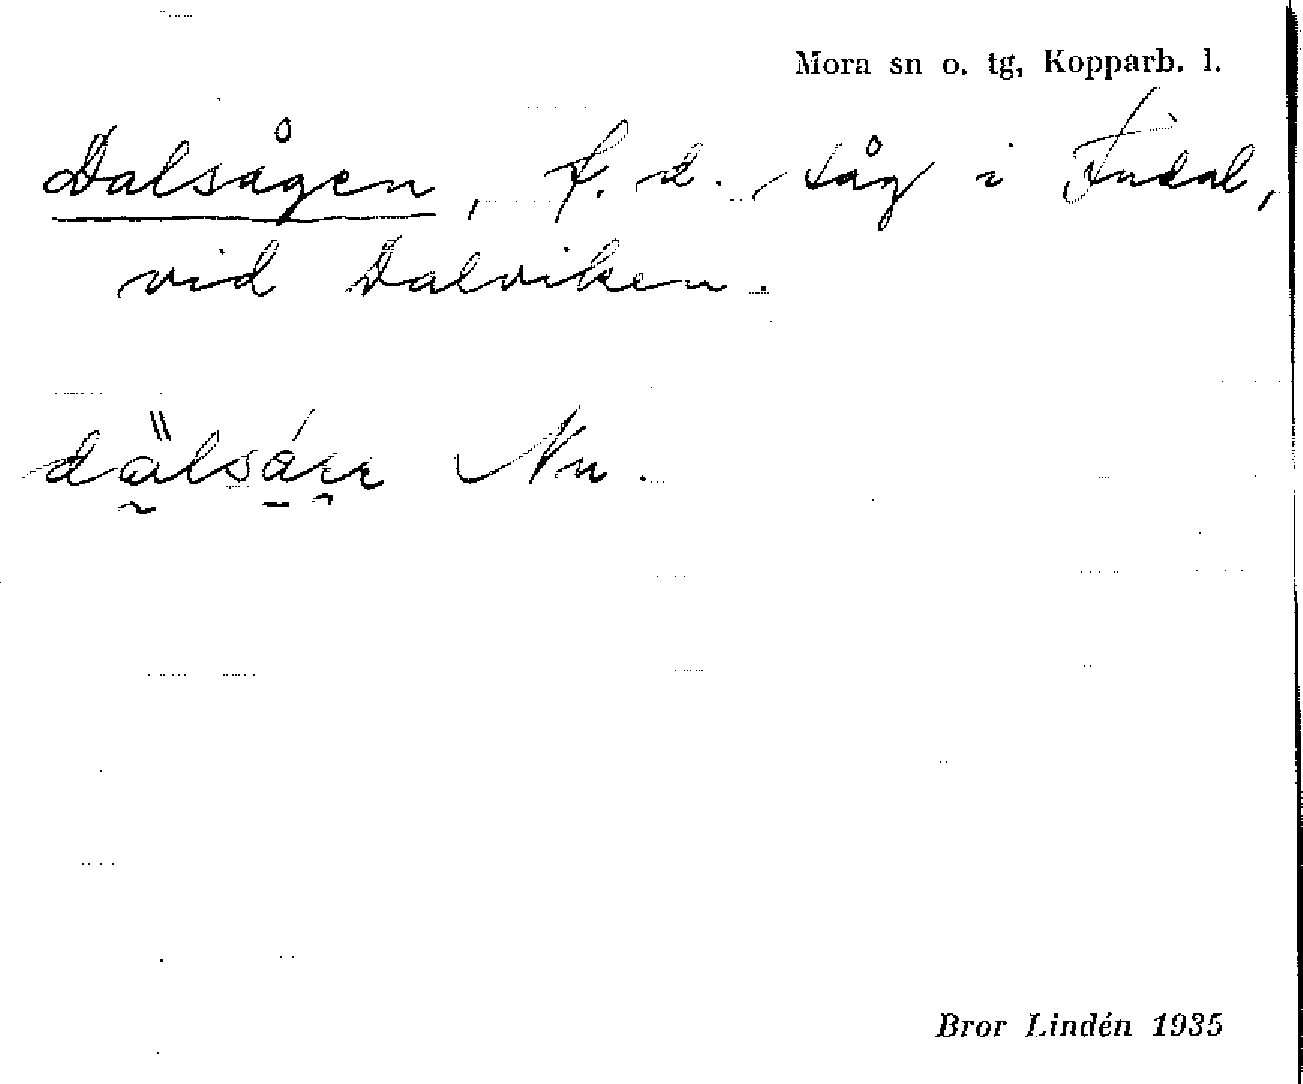 Mora sn o. tg, Kopparb. l.
Dalsågen, f. d. såg i Fudal,
vid Dalviken.
Nu.
Bror Lindén 1935